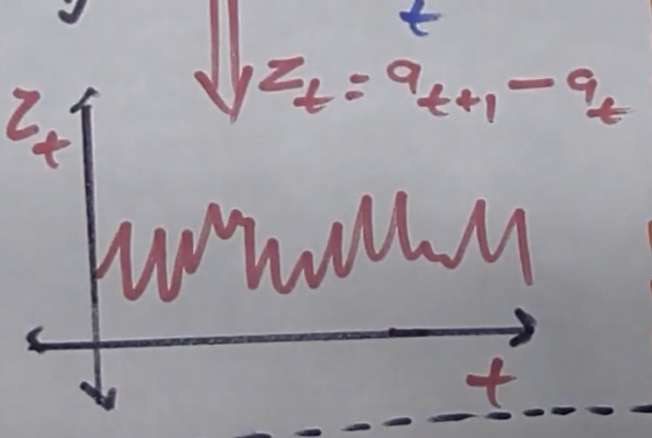 t
z_t = a_{t+1} - a_t
z_t
t